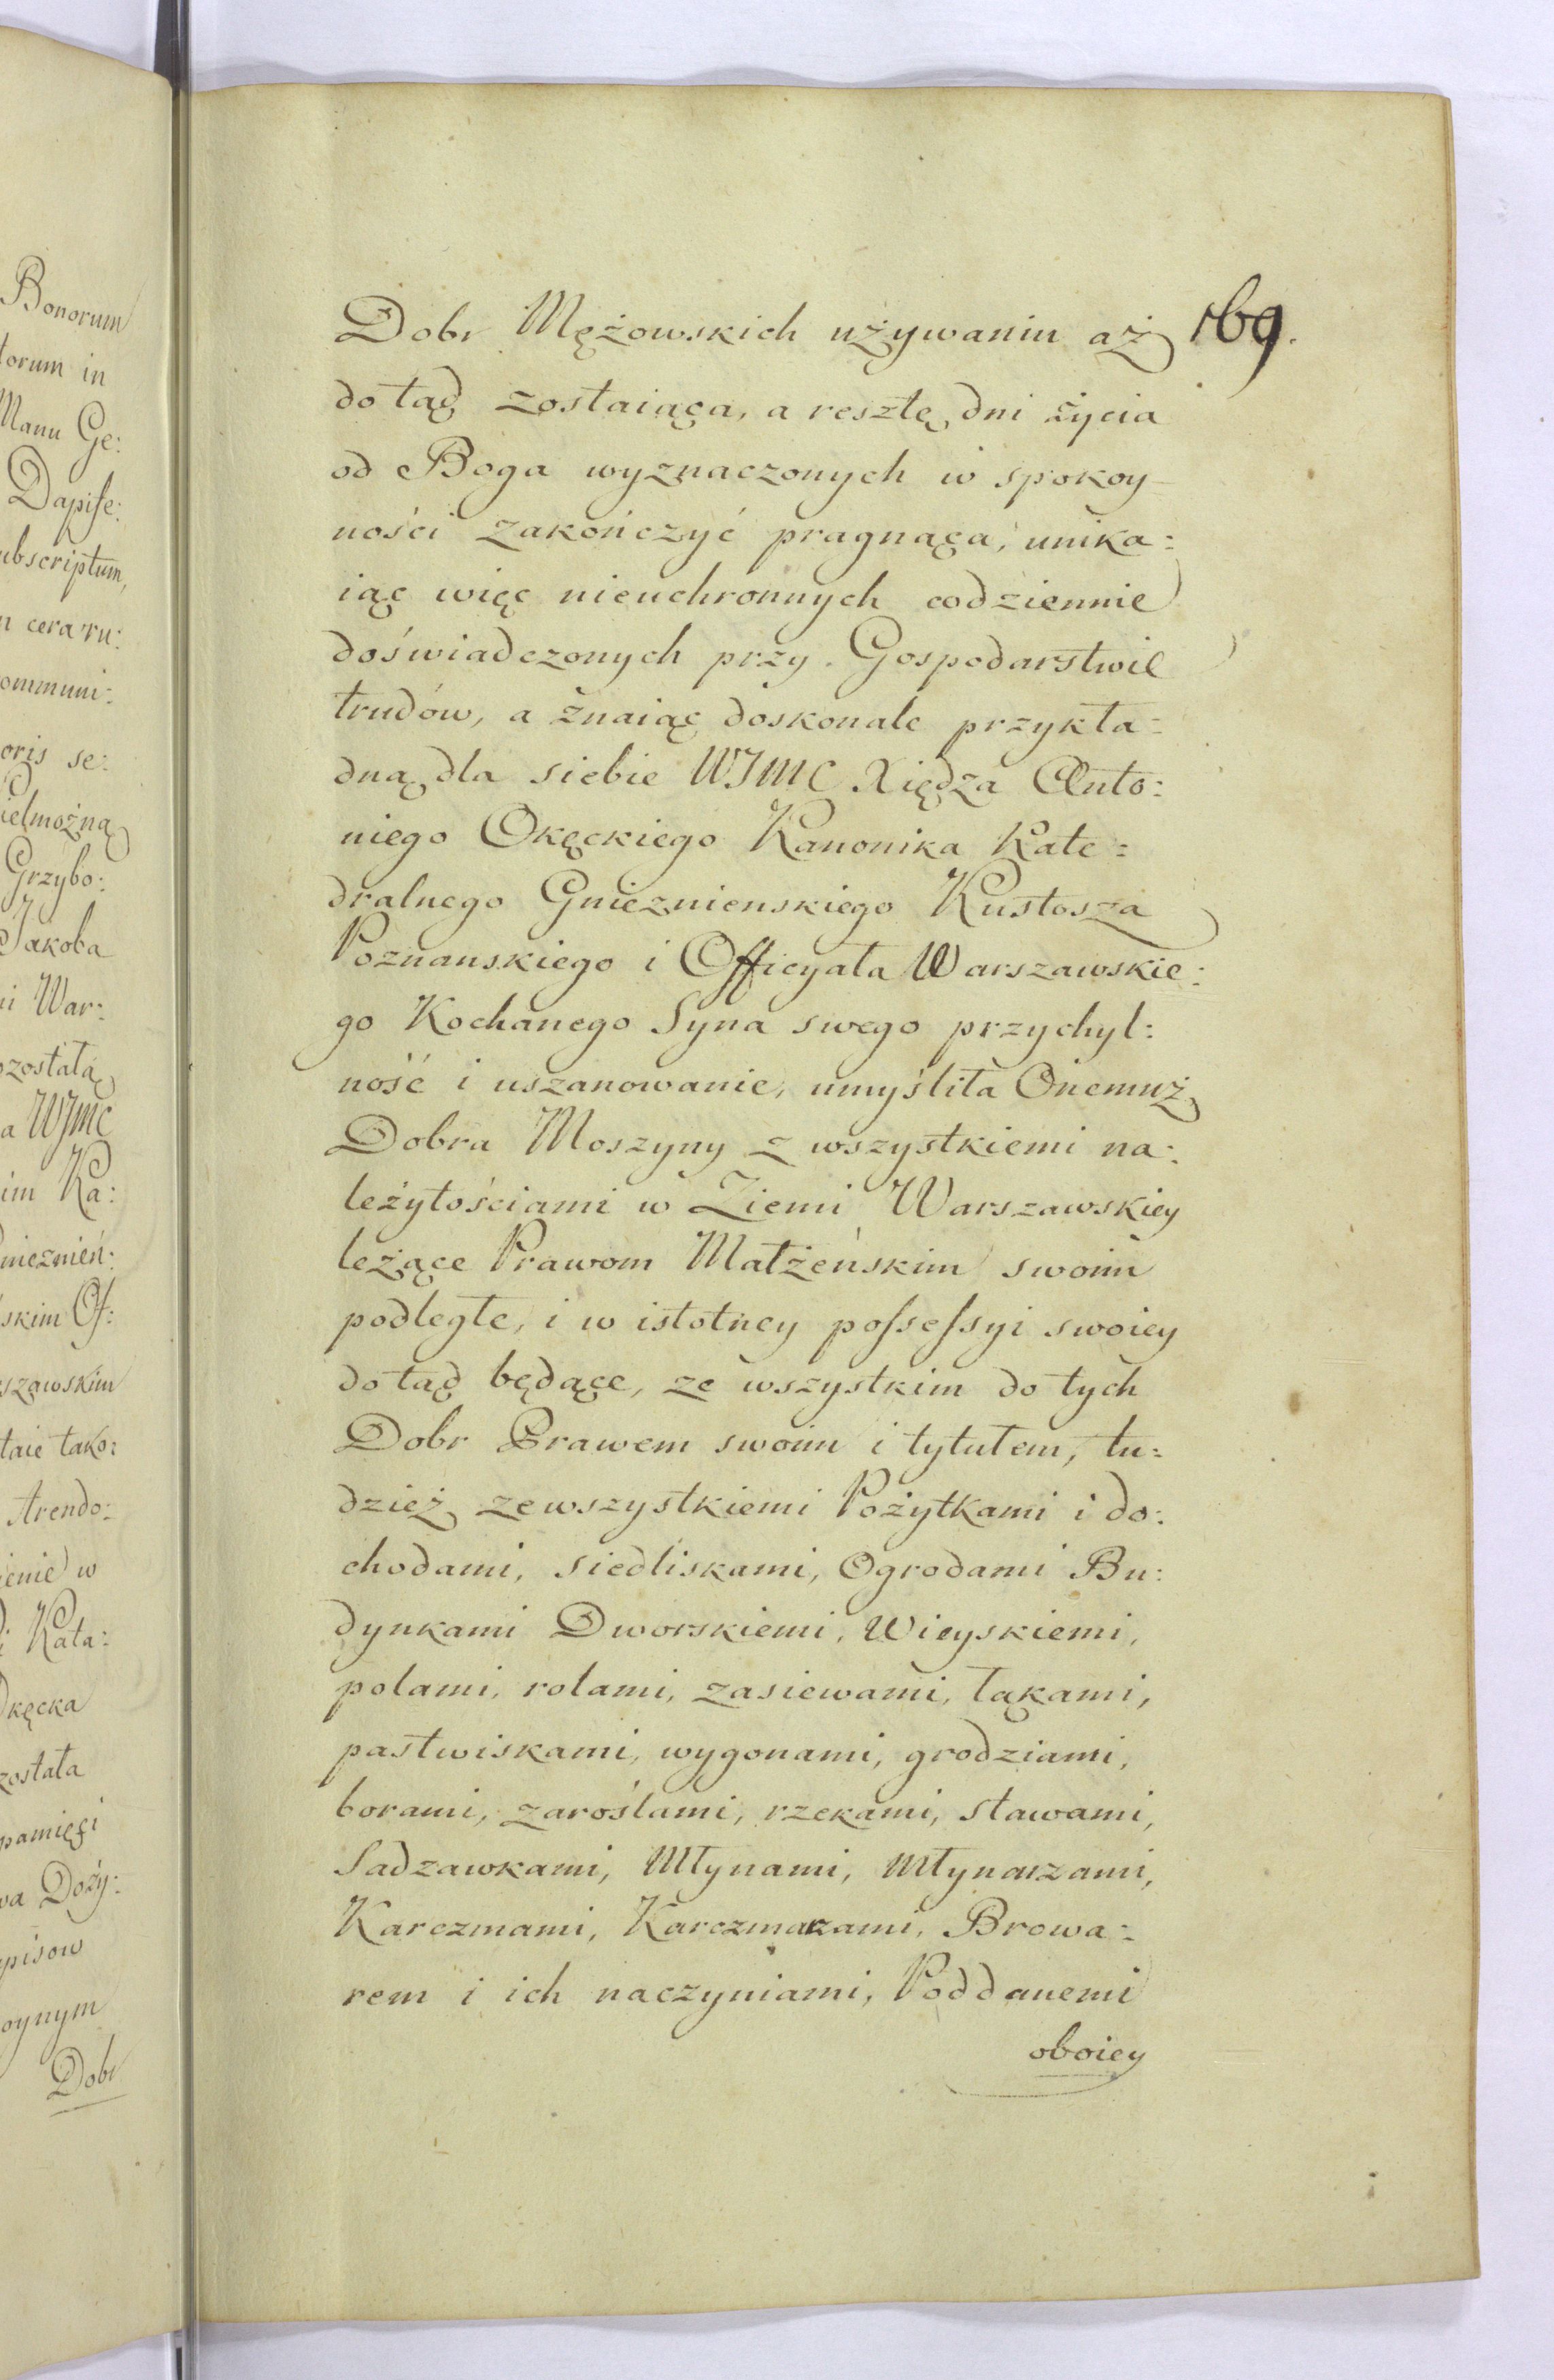 Bonorum
torum in
Manu Ge:
Dapife:
ubscriptum,
n cera ru:
ommuni:
oris se:
ielmożną
Grzybo:
Jakoba
ni War:
ozostałą
a WJMC
im Ka:
nieznień:
skim Of:
szawskim
taie tako:
Arendo:
ienie w
i Kata:
Okęcka
została
pamięci
wa Doży:
pisow
oynym
Dobr
169.
Dobr Mężowskich używaniu aż
do tąd zostaiąca, a resztę dni życia
od Boga wyznaczonych w spokoy-
ności zakończyć pragnąca, unika:
iąc więc nieuchronnych codziennie
doświadczonych przy Gospodarstwie
trudów, a znaiąc doskonale przykła:
dną dla siebie WJMC Xiędza Anto:
niego Okęckiego Kanonika Kate:
dralnego Gnieznienskiego Kustosza
Poznanskiego i Officyała Warszawskie:
go Kochanego Syna swego przychyl:
ność i uszanowanie, umyśliła Onemuż
Dobra Moszyny z wszystkiemi na:
leżytościami w Ziemi Warszawskiey
leżące Prawom Małżeńskim swoim
podległe, i w istotney poſseſsyi swoiey
do tąd będące, ze wszystkim do tych
Dobr Prawem swoim i tytułem, tu:
dzież ze wszystkiemi Pożytkami i do:
chodami, siedliskami, Ogrodami Bu:
dynkami Dworskiemi, Wieyskiemi,
polami, rolami, zasiewami, łąkami,
pastwiskami, wygonami, grodziami,
borami, zaroślami, rzekami, stawami,
Sadzawkami, Młynami, Młynarzami,
Karczmami, Karczmarzami, Browa:
rem i ich naczyniami, Poddanemi
oboiey